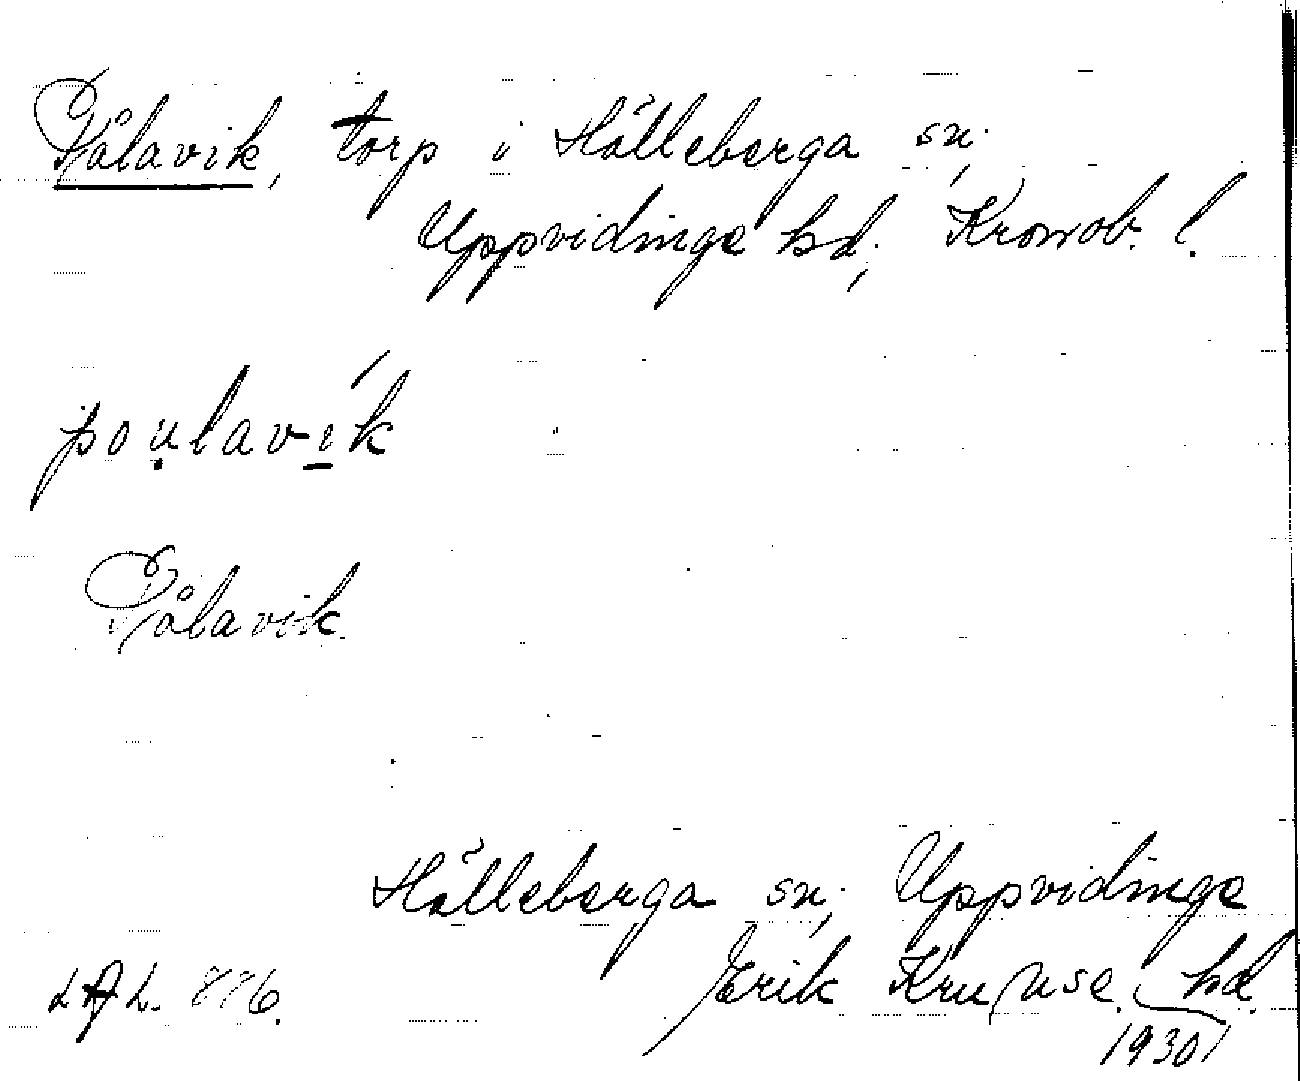 Pålavik, torp i Hälleberga sn.,
Uppvidinge hd., Kronob. l.
poulavík
Pålavik.
Hälleberga sn., Uppvidinge
hd.
LAL. 886. Erik Kruuse.
1930